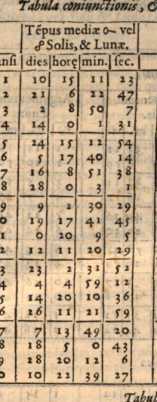 Tabula coniunctionis, &
Tẽpus mediæ ☌ vel
☍ Solis, & Lunæ.
ansi dies horę min. sec.
1 10 15 11 23
2 21 6 22 47
3 2 8 50 7
4 14 0 1 31
5 24 15 12 54
6 5 17 40 14
7 16 8 51 38
8 28 0 3 1
9 9 2 30 29
0 19 17 41 45
1 0 20 9 5
2 12 11 20 29
3 23 2 31 52
4 4 4 59 12
5 14 20 10 36
6 26 11 21 59
7 7 13 49 20
8 18 5 0 43
9 28 20 12 6
0 10 22 39 27
Tabul